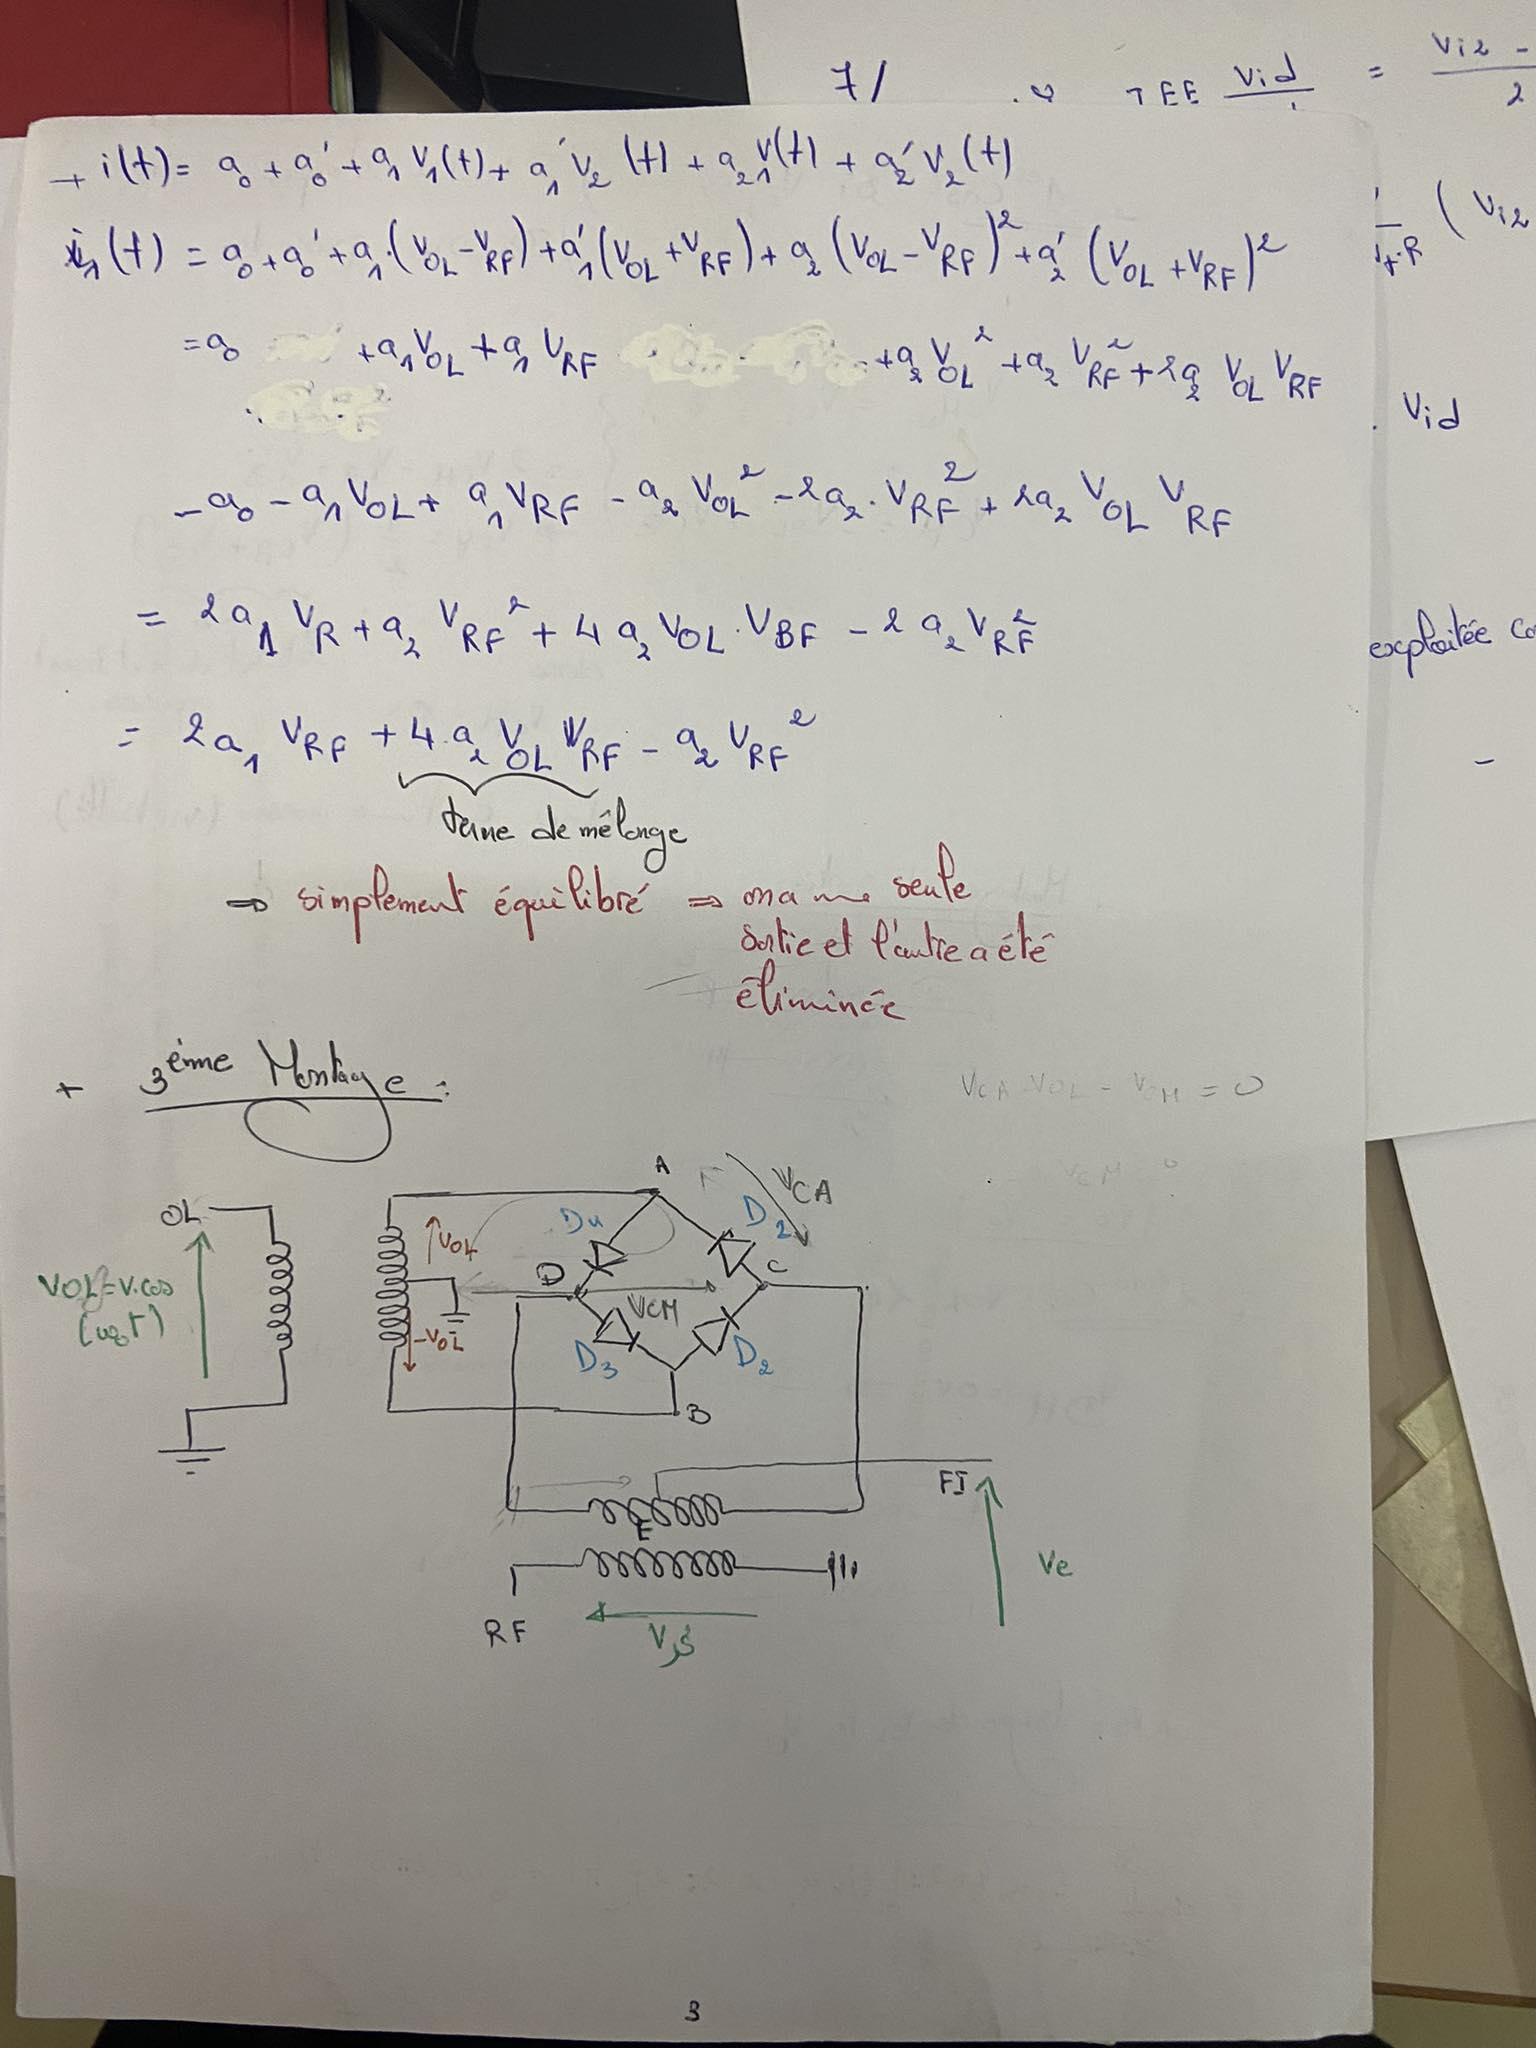 7/ TEE Vid = Vi2 -
2
→ i(t) = a₀ + a₀' + a₁ V₁(t) + a₁' V₂ (t) + a₂ V₁(t) + a₂' V₂(t)
i₁(t) = a₀ + a₀' + a₁.(VOL - VRF) + a₁'(VOL + VRF) + a₂ (VOL - VRF)² + a₂' (VOL + VRF)²
( Vi2
= a₀ + a₁VOL + a₁ VRF + a₂ VOL² + a₂ VRF² + 2a₂ VOL VRF
. Vid
- a₀ - a₁ VOL + a₁ VRF - a₂ VOL² - 2a₂. VRF² + 2a₂ VOL VRF
= 2a₁ VR + a₂ VRF² + 4 a₂ VOL . VBF - 2 a₂ VRF²
exploitée co
= 2a₁ VRF + 4. a₂ VOL VRF - a₂ VRF²
-
terme de mélange
⇒ simplement équilibré ⇒ on a une seule
sortie et l'autre a été
éliminée
+ 3ème Montage :
VCA VOL - VCM = 0
VCM
A
VCA
OL
VOL
D4
D2
VOL = V.cos
(ω₀t)
D
C
VCM
-VOL
D3
D2
B
FI
E
Ve
RF
3